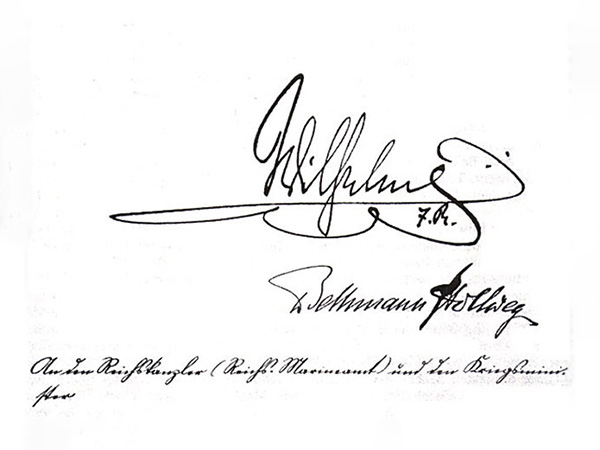 Wilhelm
I. R.
Bethmann Hollweg
An den Reichskanzler (Reichs-Marineamt) und den Kriegsmini-
ster